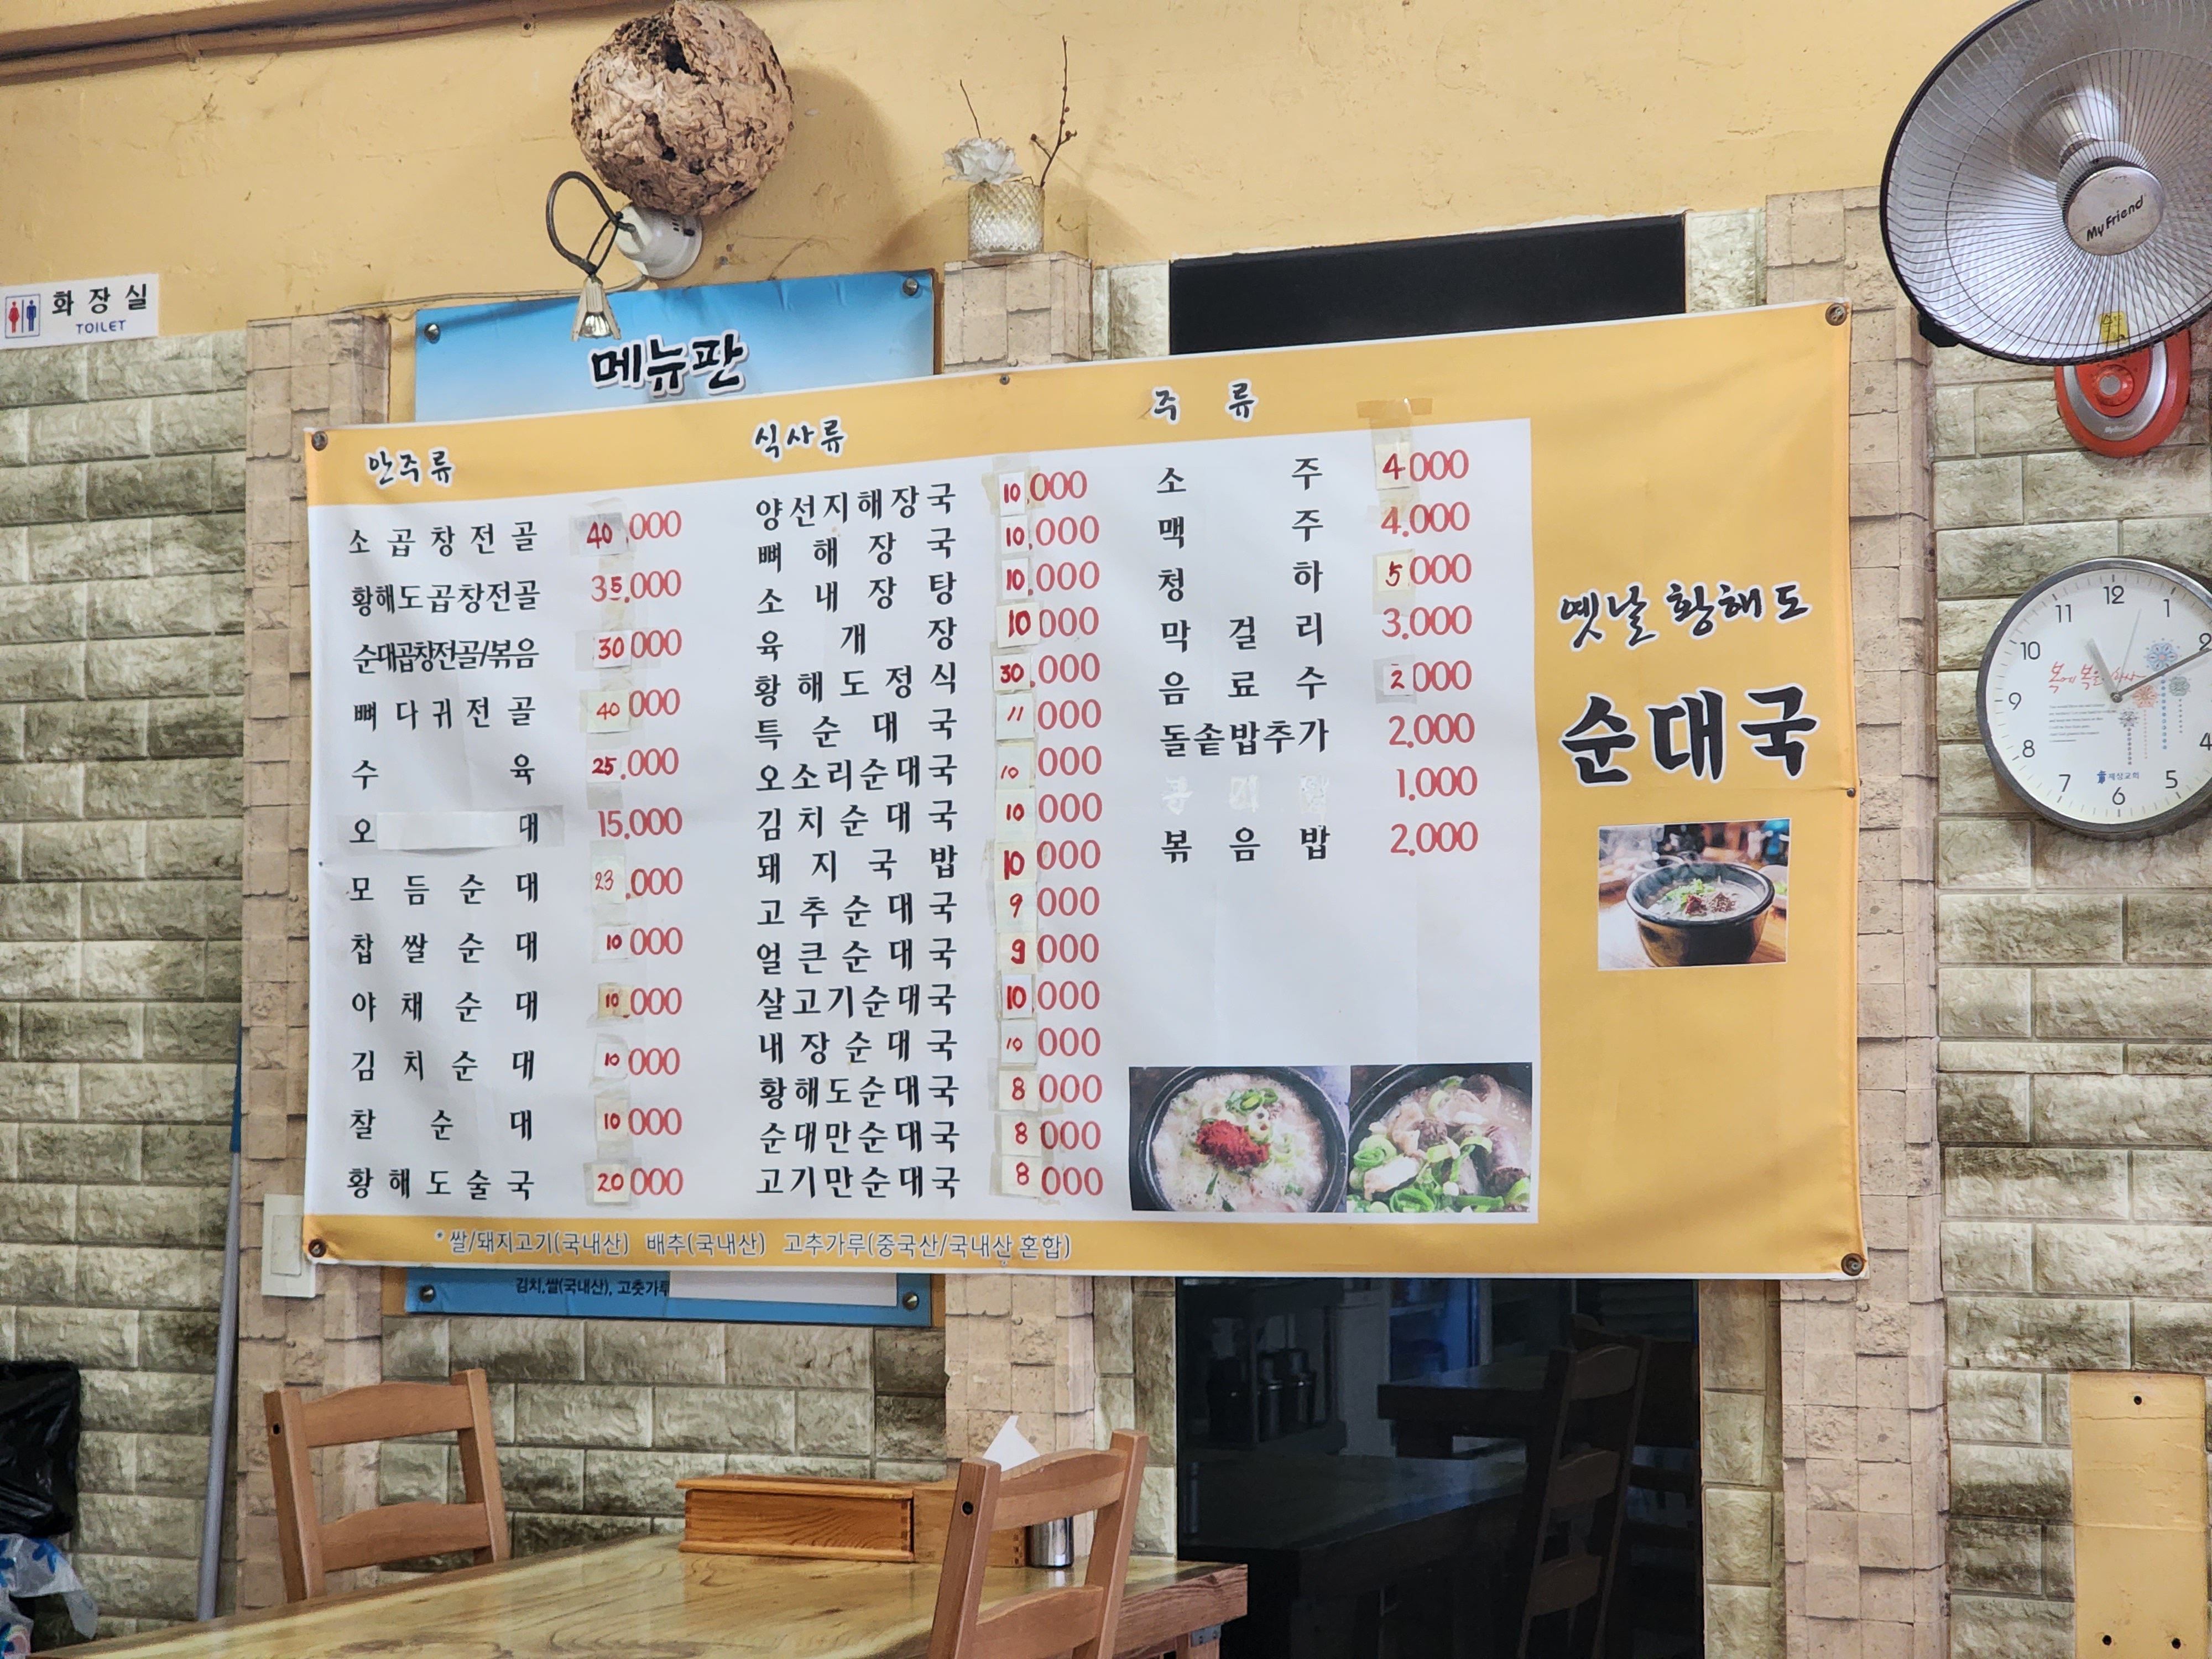 화장실
TOILET
메뉴판
안주류
소곱창전골 40,000
황해도곱창전골 35,000
순대곱창전골/볶음 30,000
뼈다귀전골 40,000
수육 25,000
오 대 15,000
모듬순대 23,000
찹쌀순대 10,000
야채순대 10,000
김치순대 10,000
찰순대 10,000
황해도술국 20,000
식사류
양선지해장국 10,000
뼈해장국 10,000
소내장탕 10,000
육개장 10,000
황해도정식 30,000
특순대국 11,000
오소리순대국 10,000
김치순대국 10,000
돼지국밥 10,000
고추순대국 9,000
얼큰순대국 9,000
살고기순대국 10,000
내장순대국 10,000
황해도순대국 8,000
순대만순대국 8,000
고기만순대국 8,000
주류
소주 4,000
맥주 4,000
청하 5,000
막걸리 3,000
음료수 2,000
돌솥밥추가 2,000
1,000
볶음밥 2,000
옛날 황해도
순대국
*쌀/돼지고기(국내산) 배추(국내산) 고추가루(중국산/국내산 혼합)
김치,쌀(국내산), 고춧가루
My Friend
12
1
2
4
5
6
7
8
9
10
11